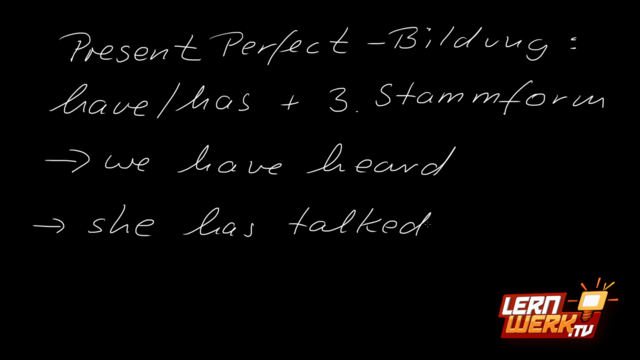 Present Perfect - Bildung :
have/has + 3. Stammform
→ we have heard
→ she has talked
LERN
WERK.TV